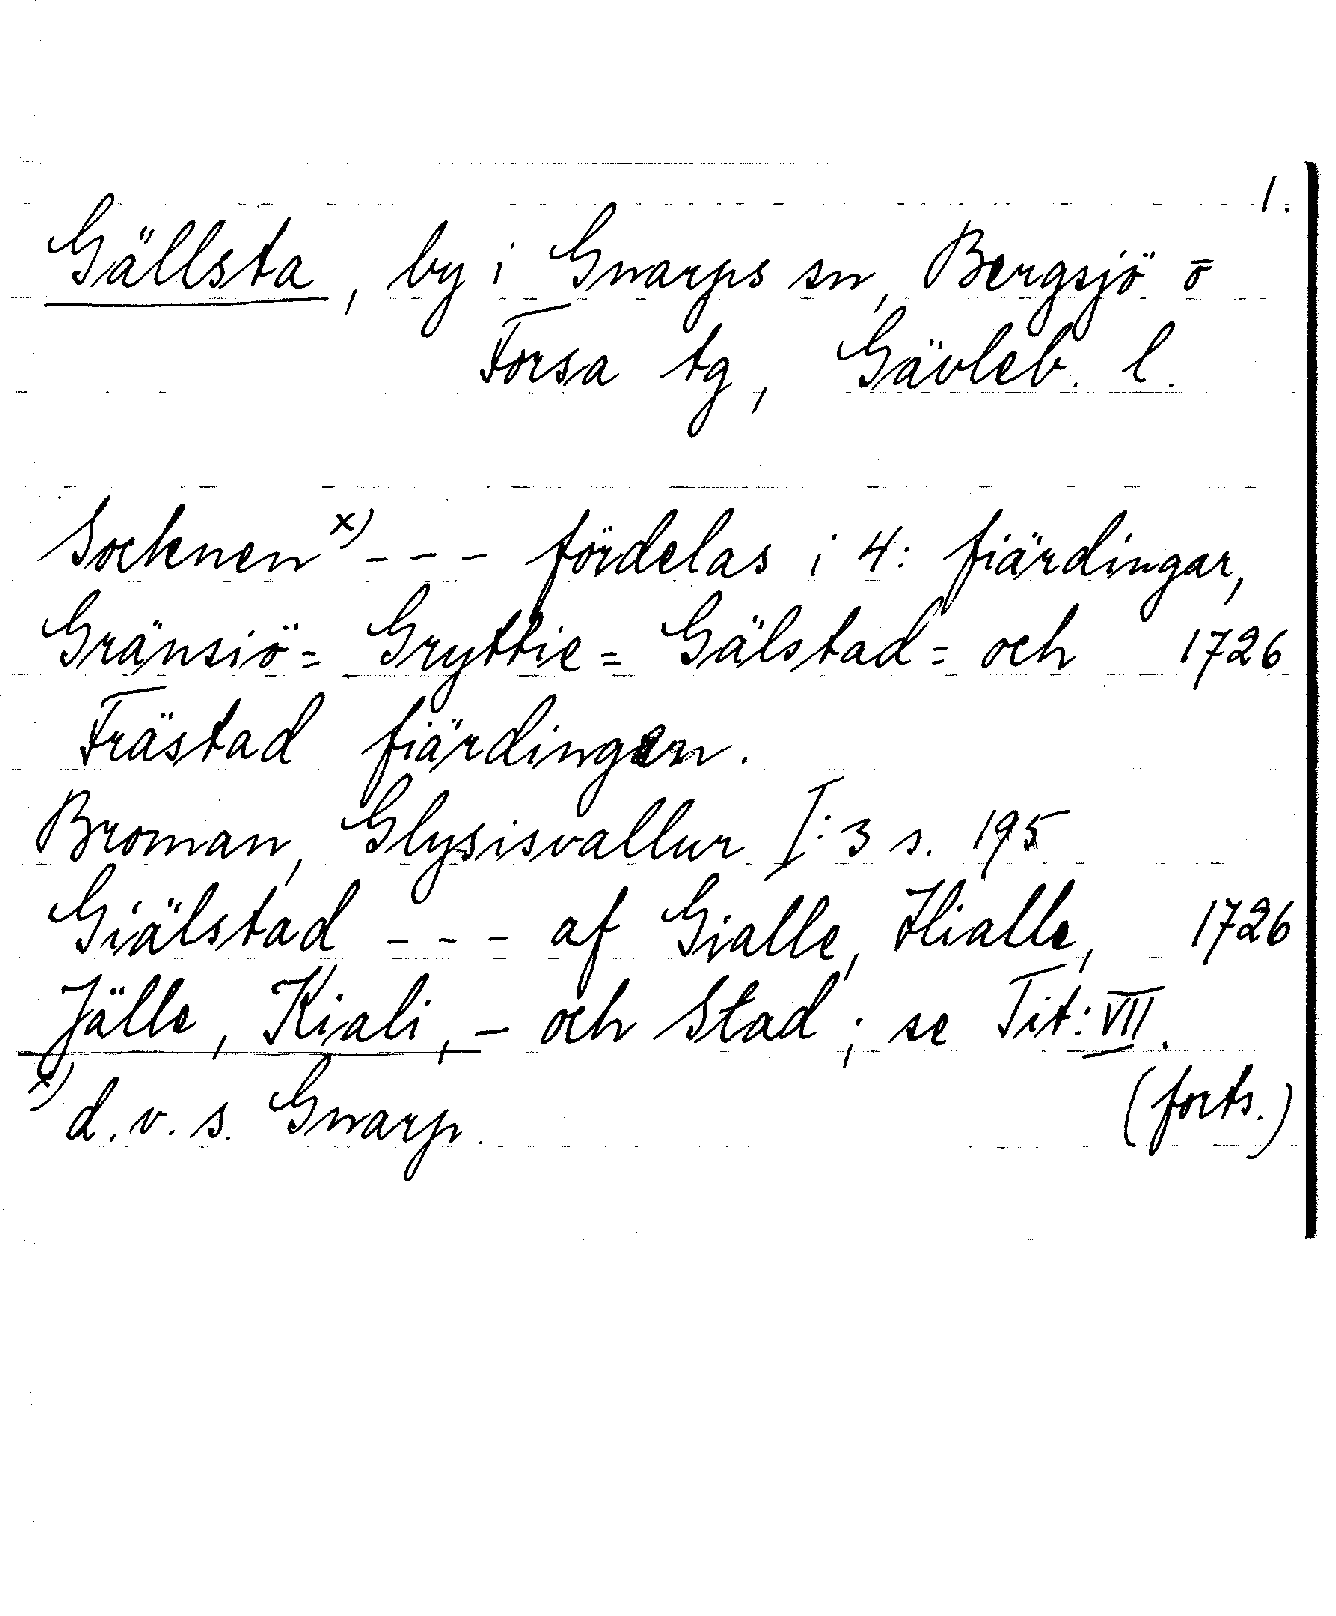 1.
Gällsta, by i Gnarps sn, Bergsjö o
Forsa tg, Gävleb. l.
Socknen x) - - - fördelas i 4: fiärdingar,
Gränsiö= Gryttie= Gälstad= och 1726
Frästad fiärdingen.
Broman, Glysisvallur I:3 s. 195
Giälstad - - - af Gialle, Hialle, 1726
Jälle, Kiali, - och Stad; se Tit: VII.
x) d.v.s. Gnarp. (forts.)